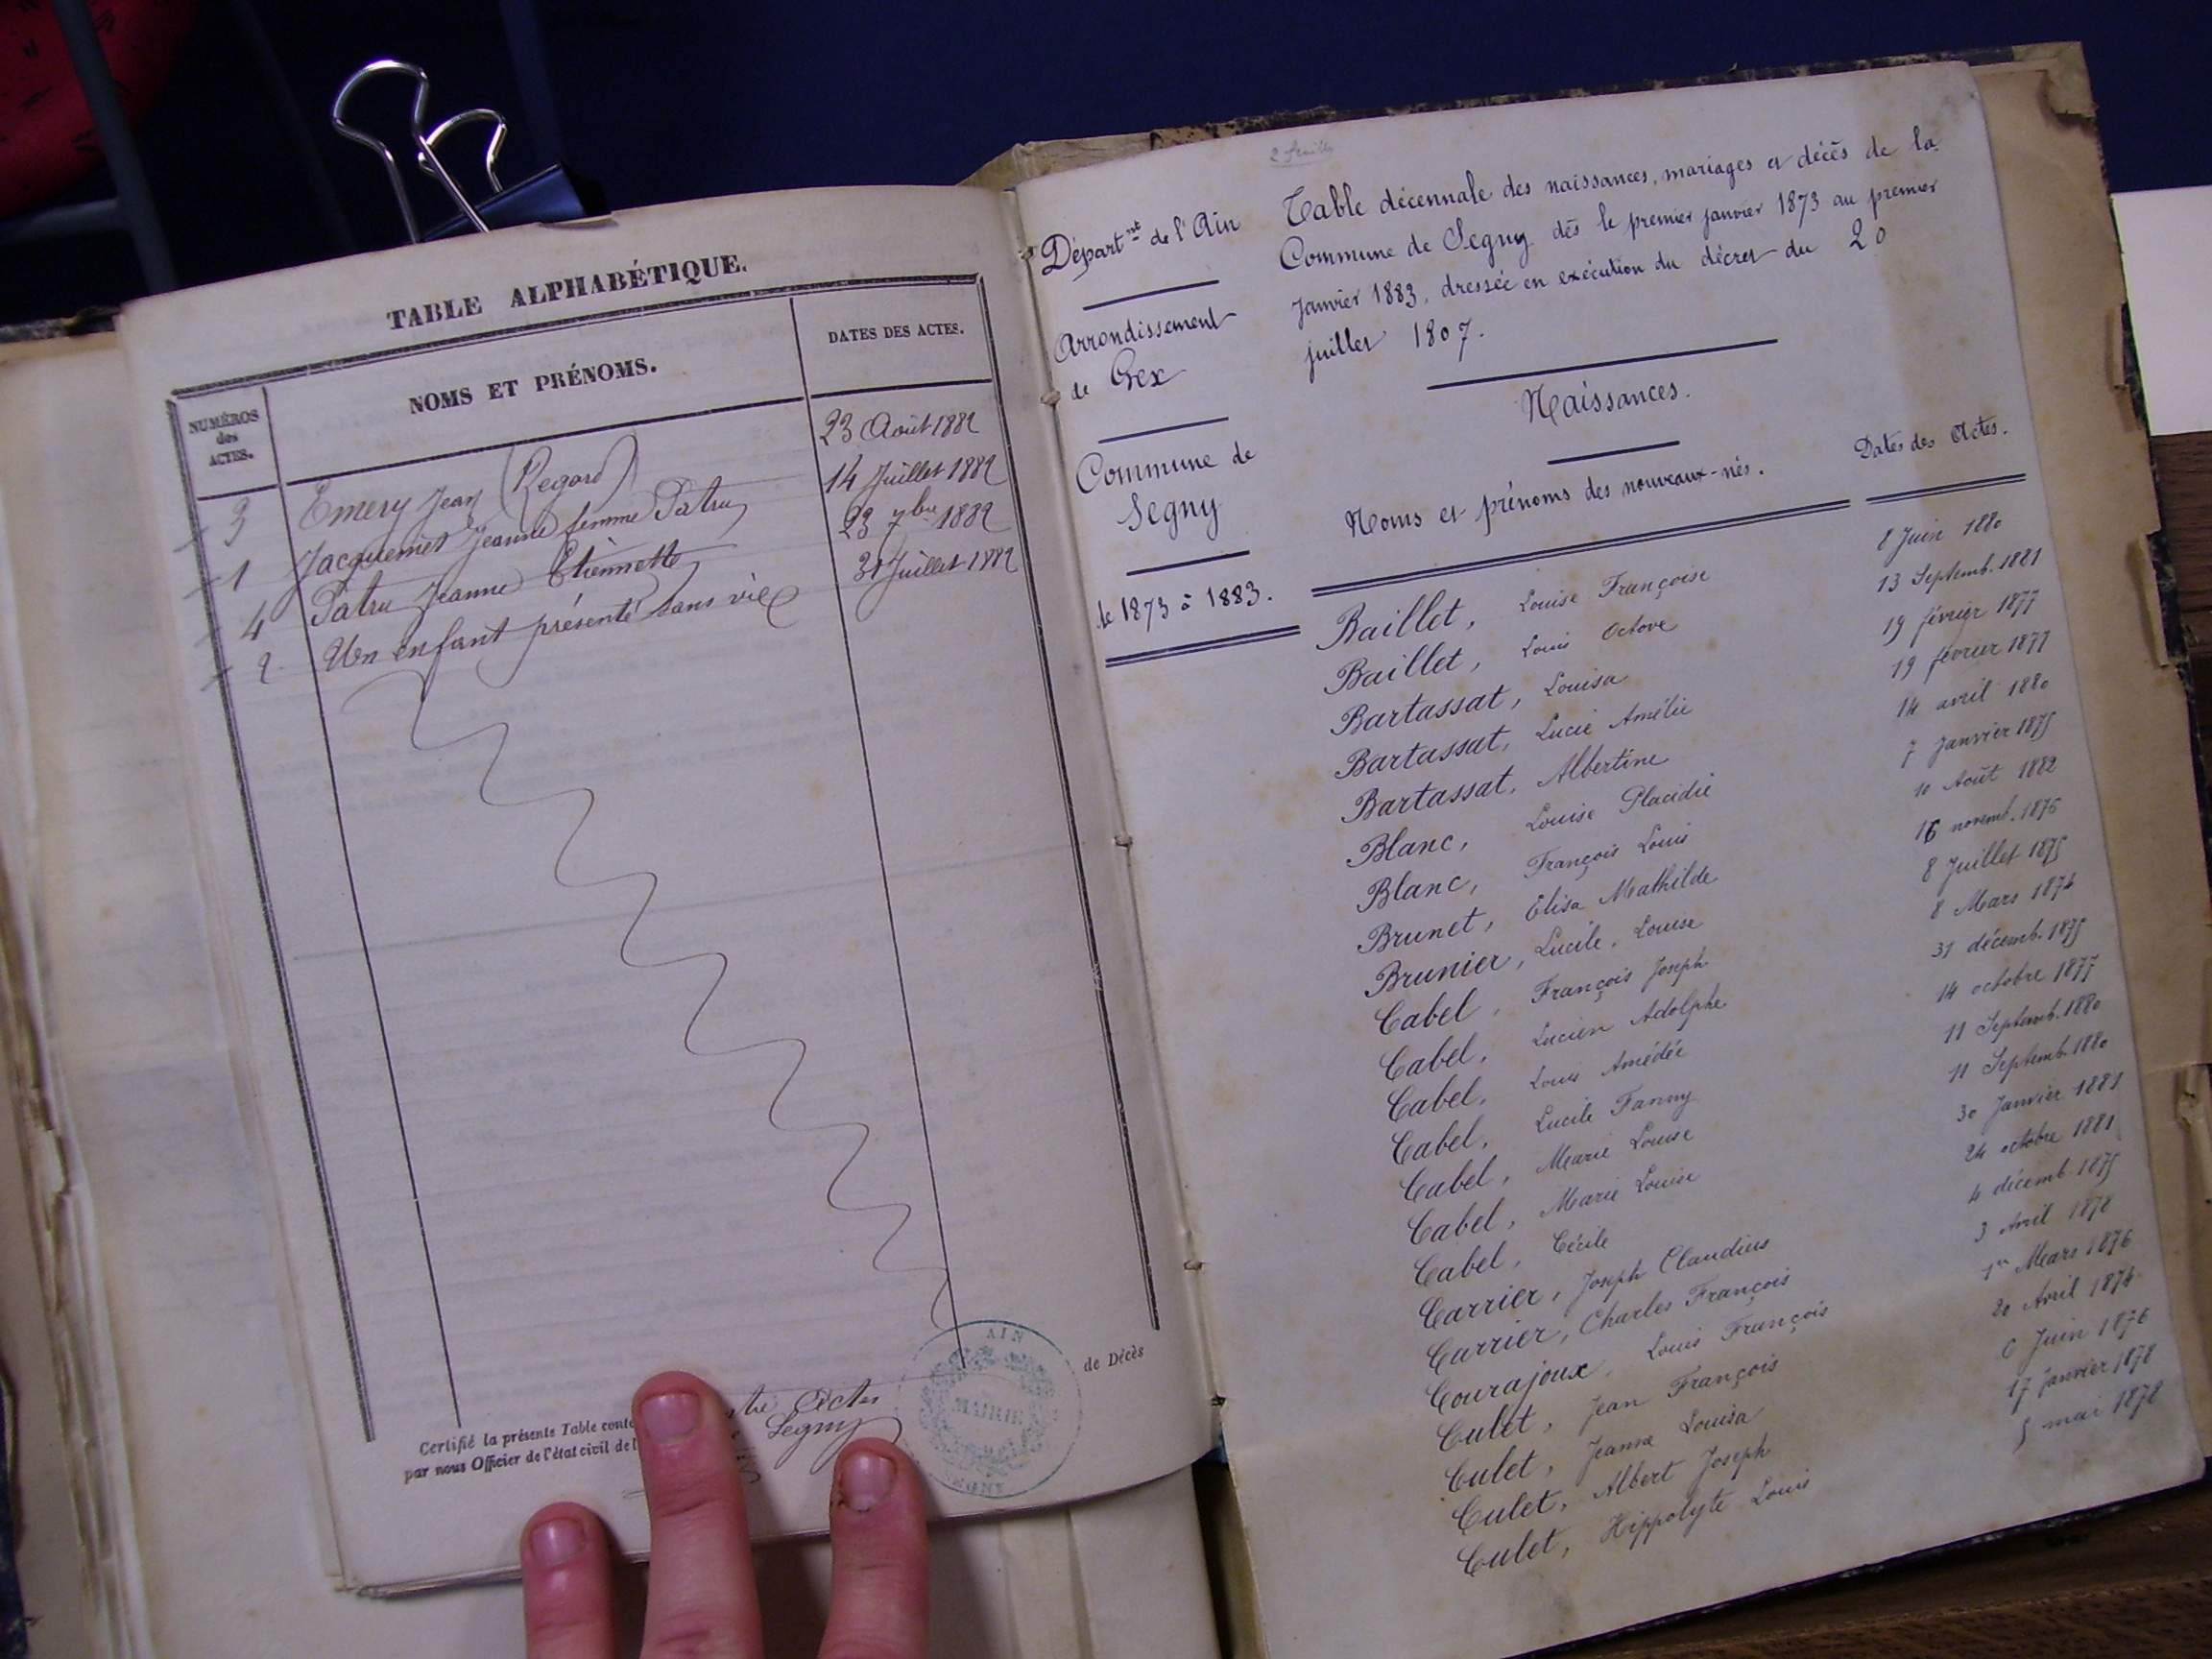 TABLE ALPHABÉTIQUE.
NUMÉROS des ACTES.
NOMS ET PRÉNOMS.
DATES DES ACTES.
3 Emery Jean (Regard) 23 Août 1882
1 Jacquemet Jeanne femme Patru 14 Juillet 1882
4 Patru Jeanne Etiennette 23 7bre 1882
2 Un enfant présenté sans vie 31 Juillet 1882
Certifié la présente Table conte
Actes
de Décès
par nous Officier de l'état civil de l
Segny
AIN
MAIRIE
SEGNY
2 feuilles
Départnt de l'Ain
Arrondissement
de Gex
Commune de
Segny
de 1873 à 1883.
Table décennale des naissances, mariages et décès de la
Commune de Segny dès le premier janvier 1873 au premier
Janvier 1883, dressée en exécution du décret du 20
juillet 1807.
Naissances.
Noms et prénoms des nouveaux-nés. Dates des Actes.
Baillet, Louise Françoise 8 Juin 1880
Baillet, Louis Octave 13 Septemb. 1881
Bartassat, Louisa 19 février 1877
Bartassat, Lucie Amélie 19 février 1877
Bartassat, Albertine 14 avril 1880
Blanc, Louise Placidie 7 Janvier 1875
Blanc, François Louis 10 Août 1882
Brunet, Elisa Mathilde 16 novemb. 1875
Brunier, Lucile, Louise 8 Juillet 1875
Cabel, François Joseph 8 Mars 1874
Cabel, Lucien Adolphe 31 décemb. 1875
Cabel, Louis Amédée 14 octobre 1877
Cabel, Lucile Fanny 11 Septemb. 1880
Cabel, Marie Louise 11 Septemb. 1880
Cabel, Marie Louise 30 Janvier 1881
Cabel, Cécile 24 octobre 1881
Carrier, Joseph Claudius 4 décemb. 1875
Carrier, Charles François 3 Avril 1878
Courajoux, Louis François 1er Mars 1876
Culet, Jean François 20 Avril 1874
Culet, Jeanne Louisa 6 Juin 1876
Culet, Albert Joseph 17 janvier 1878
Culet, Hippolyte Louis 5 mai 1878